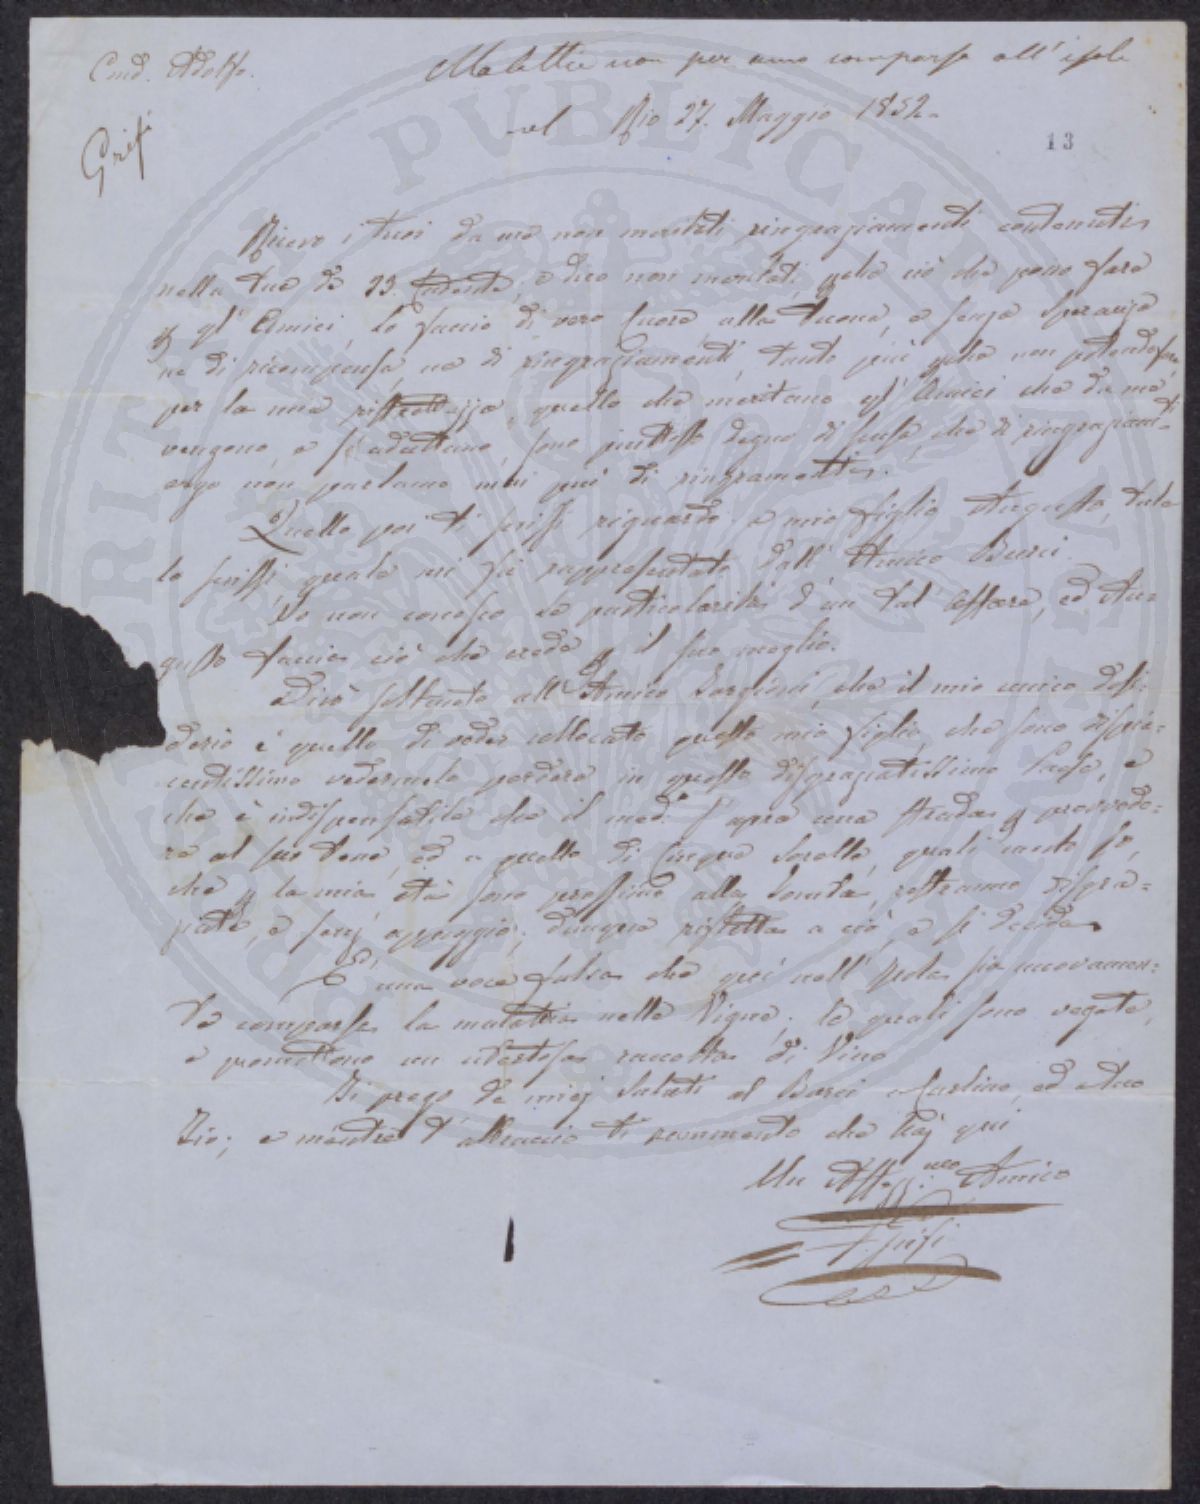 Malattia non per anco comparsa all'isola
Cmd. Adolfo.
Grifi
Rio 27. Maggio 1852.
13
Ricevo i tuoi da me non meritati ringraziamenti contenuti
nella tua de 23. cadente, e dico non meritati, pchè ciò che posso fare
p gl'Amici, lo faccio di vero Cuore, alla buona, e senza speranza
nè di ricompensa, nè di ringraziamenti, tanto più pchè non potendo fare
per la mia ristrettezza, quello che meritano gl'Amici che da me
vengono, e si adattano, sono piuttosto degno di scusa, che di ringraziamti
ergo non parlamo mai più di ringramenti.
Quello poi ti scrissi riguardo a mio figlio Augusto, tale
lo scrissi, quale mi fù rappresentato dall'Amico Burci.
Io non conosco le particolarità d'un tal'affare, ed Au=
gusto faccia ciò che crede p il suo meglio.
Dirò soltanto all'Amico che il mio unico desi=
derio è quello di veder collocato questo mio figlio, che sono dispia=
centissimo vedermelo perdere in questo disgraziatissimo Paese, e
che è indispensabile che il med.o s'apra una strada p provvede=
re al suo bene, ed a quello di Cinque Sorelle, quali
che p la mia età sono prossimo alla tomba, restranno disgra=
ziate, e senz'appoggio; dunque rifletta a ciò, e si decida
È una voce falsa che quì nell'Isola sia nuovamen=
te comparsa la malattia nelle Vigne; le quali sono vegete,
e promettono un ubertosa raccolta di Vino
Ti prego de miej Saluti al Burci e Carlino, ed a tuo
Zio; e mentre t'abbraccio ti rammento che haj quì
Un Aff.mo Amico
Grifi